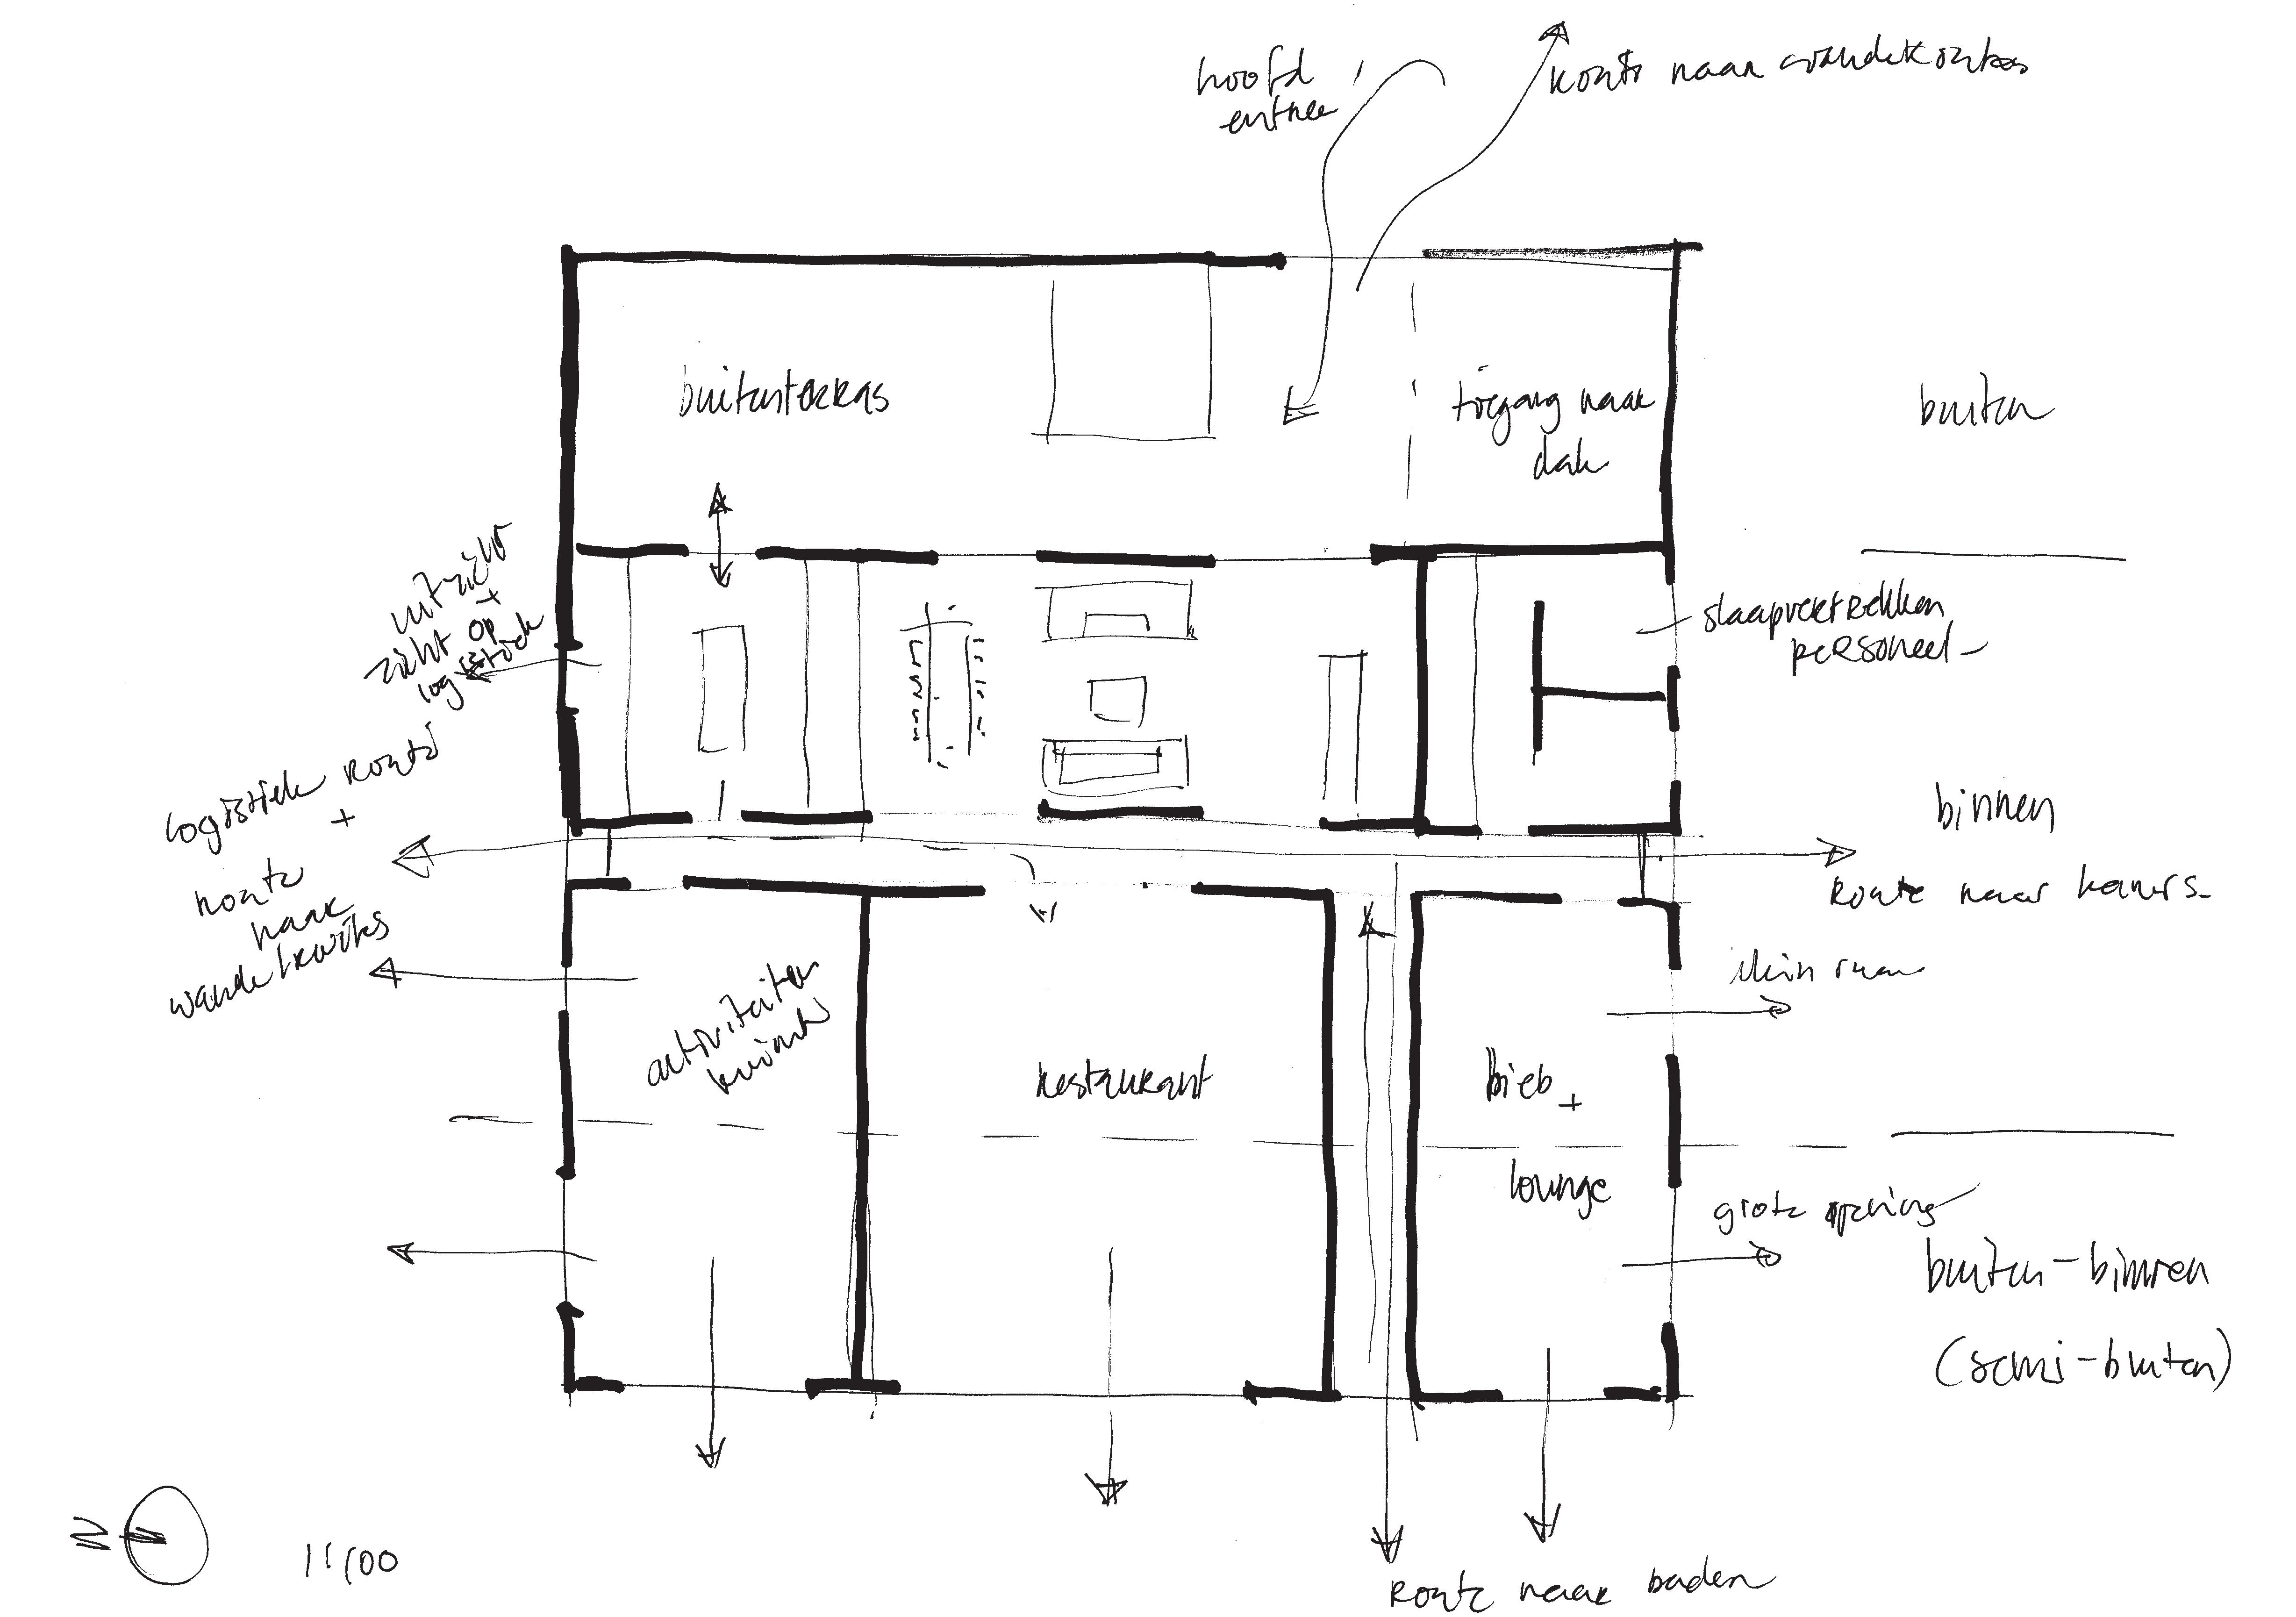 hoofd
entree
route naar wandelroutes
buitenterras
toegang naar
dak
buiten
uitzicht
+
zicht op
logistiek
slaapvertrekken
personeel
logistiek route
+
route
naar
wandelroutes
binnen
route naar kamers
klein raam
activiteiten
ruimte
restaurant
bieb +
lounge
grote opening
buiten-binnen
(semi-buiten)
route naar baden
N
1:100